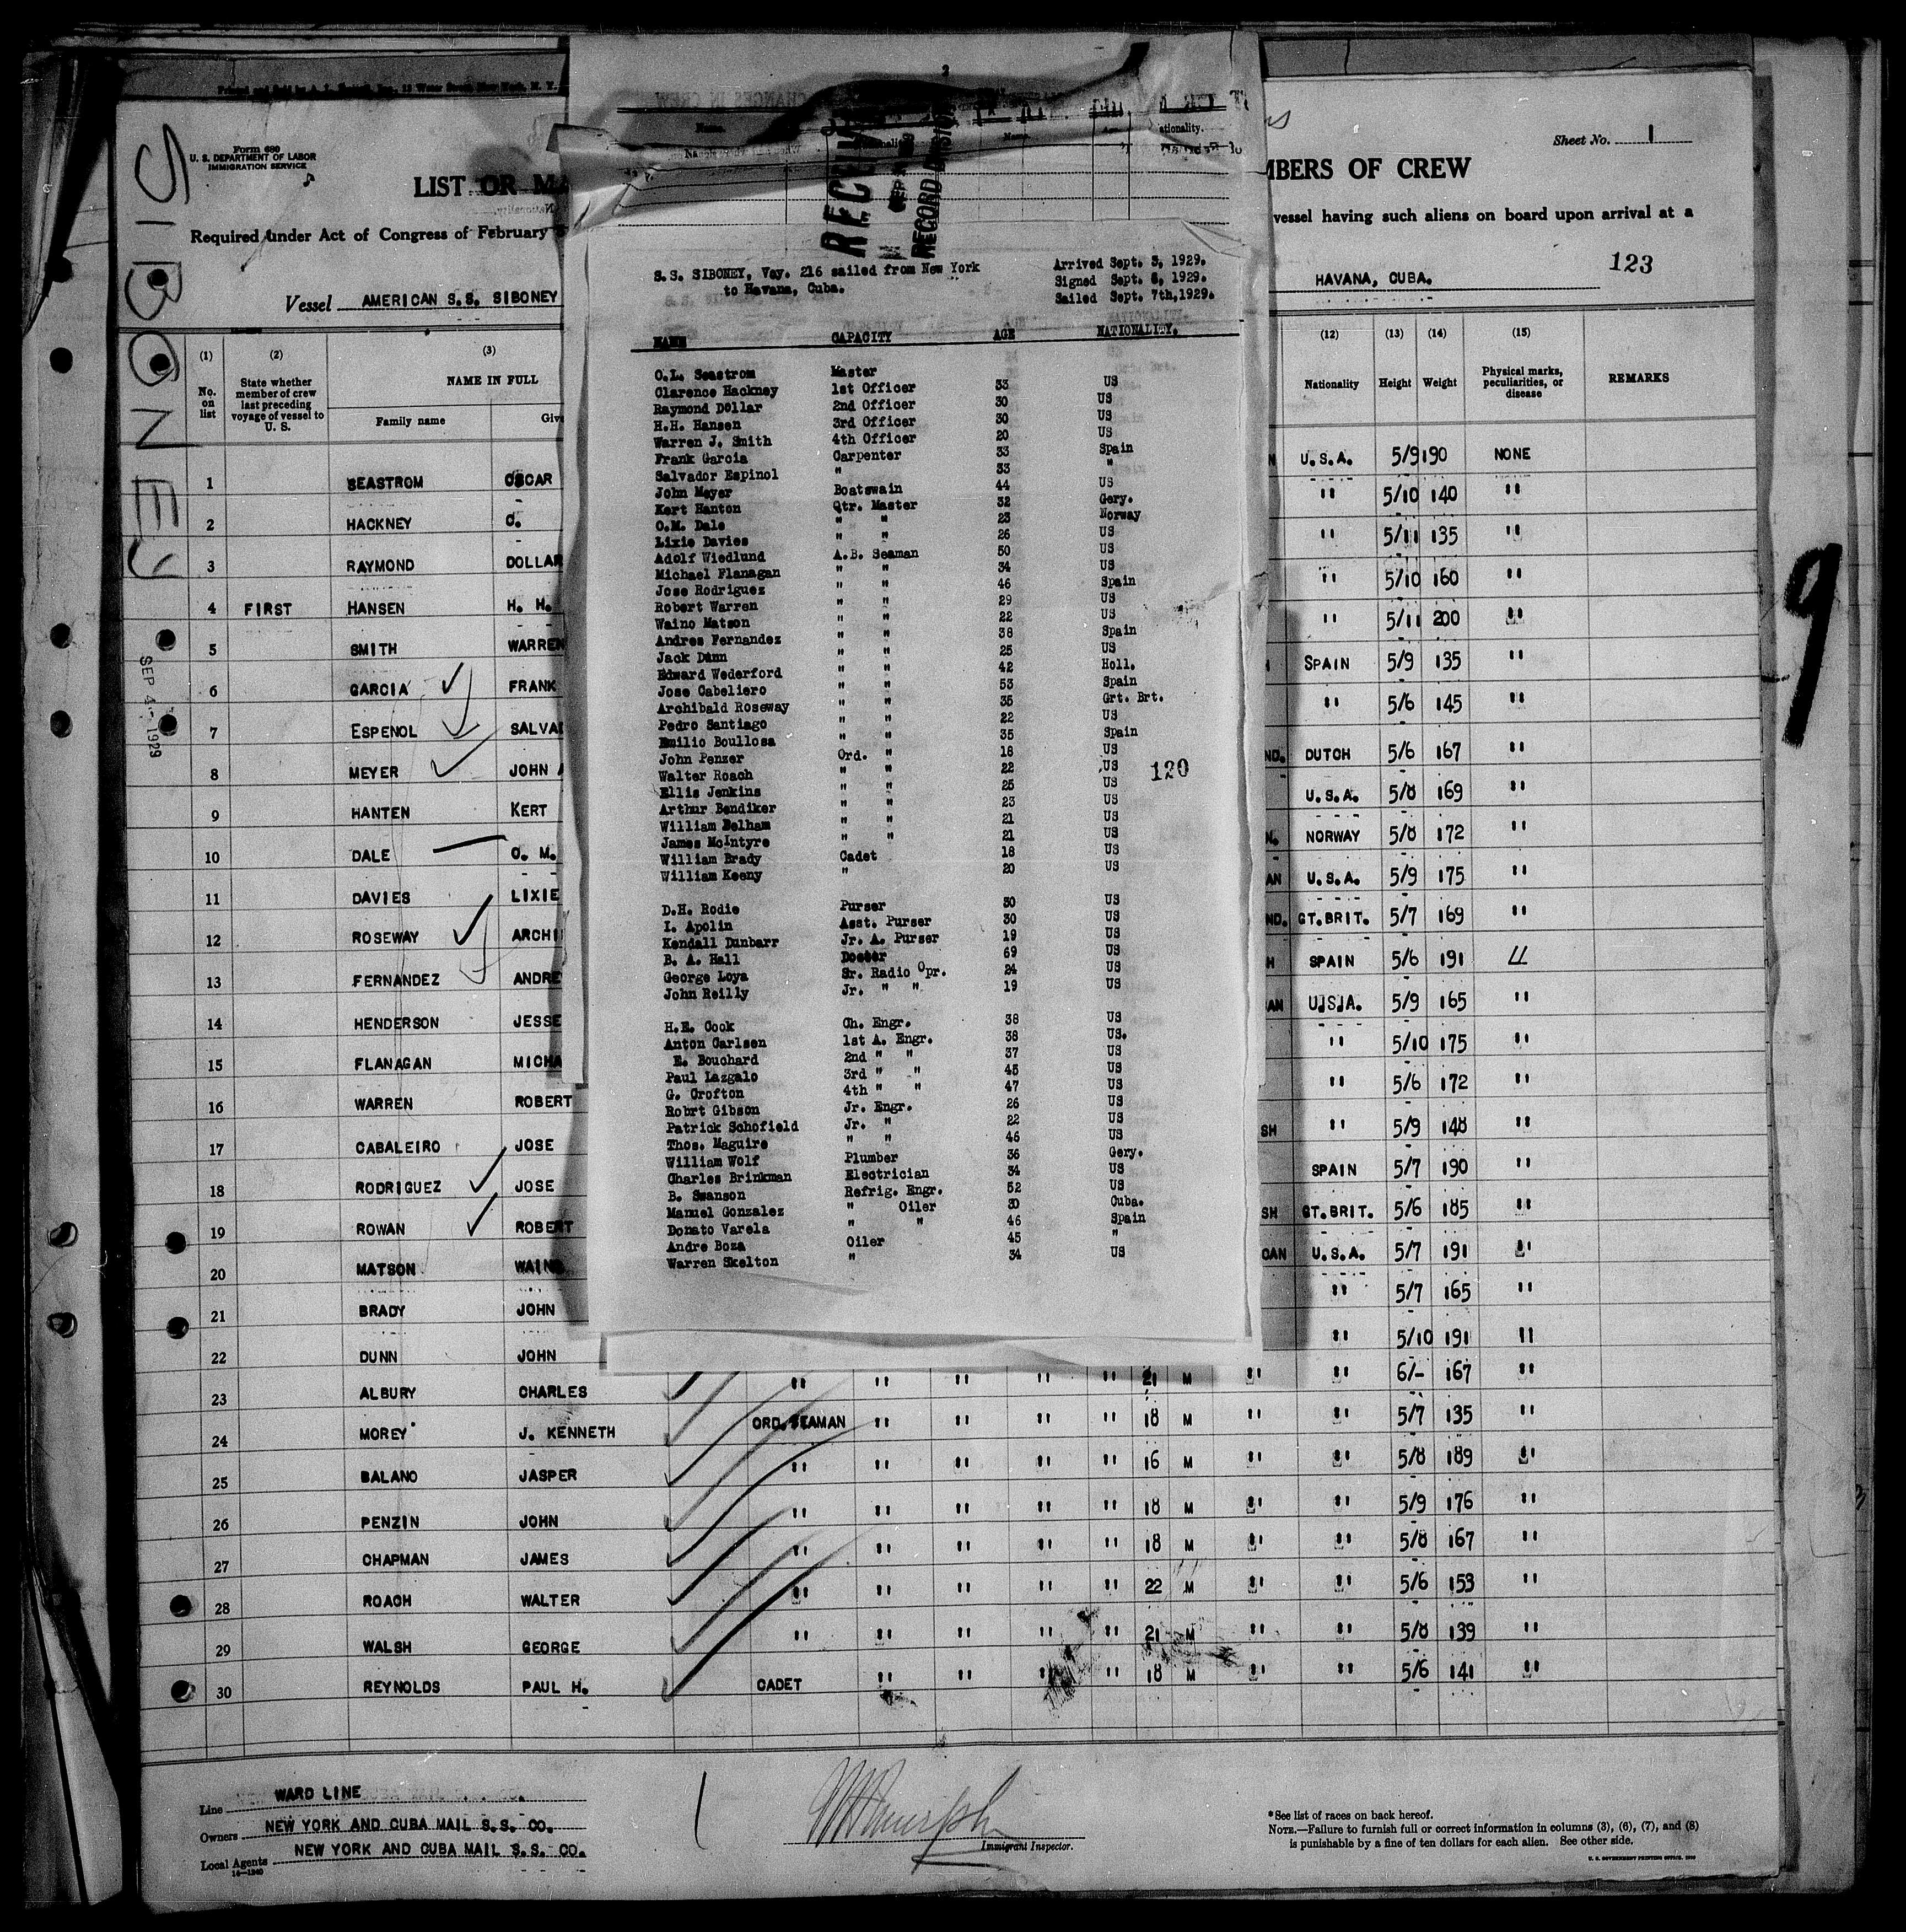 Printed and Sold by
Form 680
U. S. DEPARTMENT OF LABOR
IMMIGRATION SERVICE
Sheet No. 1
LIST OR MA
MBERS OF CREW
Required under Act of Congress of February
vessel having such aliens on board upon arrival at a
123
Vessel AMERICAN S.S. SIBONEY
HAVANA, CUBA.
SIBONEY
SEP 4 - 1929
9
(1) (2) (3) (12) (13) (14) (15)
No. on list
State whether member of crew last preceding voyage of vessel to U. S.
NAME IN FULL
Family name
Nationality Height Weight
Physical marks, peculiarities, or disease
REMARKS
1 SEASTROM OSCAR U.S.A. 5/9 190 NONE
2 HACKNEY C. " 5/10 140 "
3 RAYMOND DOLLAR " 5/11 135 "
4 FIRST HANSEN H. H. " 5/10 160 "
5 SMITH WARREN " 5/11 200 "
6 GARCIA FRANK SPAIN 5/9 135 "
7 ESPENOL SALVA " 5/6 145 "
8 MEYER JOHN A DUTCH 5/6 167 "
9 HANTEN KERT U.S.A. 5/8 169 "
10 DALE O. M. NORWAY 5/8 172 "
11 DAVIES LIXIE AN U.S.A. 5/9 175 "
12 ROSEWAY ARCHI ND. GT.BRIT. 5/7 169 "
13 FERNANDEZ ANDRE H SPAIN 5/6 191 "
14 HENDERSON JESSE AN U.S.A. 5/9 165 "
15 FLANAGAN MICHA " 5/10 175 "
16 WARREN ROBERT " 5/6 172 "
17 CABALEIRO JOSE SH " 5/9 148 "
18 RODRIGUEZ JOSE SPAIN 5/7 190 "
19 ROWAN ROBERT SH GT.BRIT. 5/6 185 "
20 MATSON WAIN CAN U.S.A. 5/7 191 "
21 BRADY JOHN " 5/7 165 "
22 DUNN JOHN " 5/10 191 "
23 ALBURY CHARLES " " " " " 21 M " " 6/- 167 "
24 MOREY J. KENNETH ORD. SEAMAN " " " " 18 M " " 5/7 135 "
25 BALANO JASPER " " " " " 16 M " " 5/8 189 "
26 PENZIN JOHN " " " " " 18 M " " 5/9 176 "
27 CHAPMAN JAMES " " " " " 18 M " " 5/8 167 "
28 ROACH WALTER " " " " " 22 M " " 5/6 153 "
29 WALSH GEORGE " " " " " 21 M " " 5/8 139 "
30 REYNOLDS PAUL H. CADET " " " " 18 M " " 5/6 141 "
Line WARD LINE
Owners NEW YORK AND CUBA MAIL S.S. CO.
Local Agents NEW YORK AND CUBA MAIL S.S. CO.
Immigrant Inspector.
*See list of races on back hereof.
NOTE.—Failure to furnish full or correct information in columns (3), (6), (7), and (8)
is punishable by a fine of ten dollars for each alien. See other side.
U. S. GOVERNMENT PRINTING OFFICE
CHANGES IN CREW
Name.
RECEIVED
RECORD DIVISION
S.S. SIBONEY, Voy. 216 sailed from New York
to Havana, Cuba.
Arrived Sept. 3, 1929.
Signed Sept. 6, 1929.
Sailed Sept. 7th,1929.
NAME CAPACITY AGE NATIONALITY.
O.L. Seastrom Master
Clarence Hackney 1st Officer 33 US
Raymond Dollar 2nd Officer 30 US
H.H. Hansen 3rd Officer 30 US
Warren J. Smith 4th Officer 20 US
Frank Garcia Carpenter 33 Spain
Salvador Espinol " 33 "
John Meyer Boatswain 44 US
Kert Hanton Qtr. Master 32 Gery.
O.M. Dale " " 23 Norway
Lixie Davies " " 26 US
Adolf Wiedlund A.B. Seaman 50 US
Michael Flanagan " " 34 US
Jose Rodriguez " " 46 Spain
Robert Warren " " 29 US
Waino Matson " " 22 US
Andres Fernandez " " 38 Spain
Jack Dunn " " 25 US
Edward Wederford " " 42 Holl.
Jose Cabeliero " " 53 Spain
Archibald Roseway " " 35 Grt. Brt.
Pedro Santiago " " 22 US
Emilio Boullosa " " 35 Spain
John Penzer Ord. " 18 US
Walter Roach " " 22 US
120
Ellis Jenkins " " 25 US
Arthur Bendiker " " 23 US
William Belham " " 21 US
James McIntyre " " 21 US
William Brady Cadet 18 US
William Keeny " 20 US
D.H. Rodie Purser 30 US
I. Apolin Asst. Purser 30 US
Kendall Dunbarr Jr. A. Purser 19 US
B. A. Hall Doctor 69 US
George Loya Sr. Radio Opr. 24 US
John Reilly Jr. " " 19 US
H.E. Cook Ch. Engr. 38 US
Anton Carlsen 1st A. Engr. 38 US.
E. Bouchard 2nd " " 37 US
Paul Lazgalo 3rd " " 45 US
G. Crofton 4th " " 47 US
Robrt Gibson Jr. Engr. 26 US
Patrick Schofield Jr. " 22 US
Thos. Maguire " " 46 US
William Wolf Plumber 36 Gery.
Charles Brinkman Electrician 34 US
B. Swanson Refrig. Engr. 52 US
Manuel Gonzalez " Oiler 30 Cuba.
Donato Varela " " 46 Spain
Andre Boza Oiler 45 "
Warren Skelton " 34 US